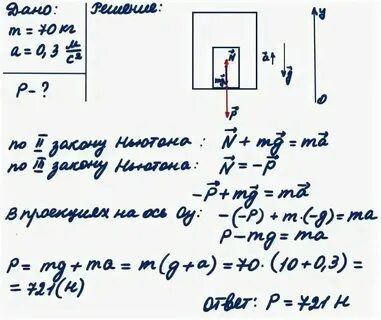 Дано:
m = 70 кг
a = 0,3 м/с²
P - ?
Решение:
y
N⃗
a⃗↑ ↓g⃗
mg⃗
P⃗
0
по II закону Ньютона: N⃗ + mg⃗ = ma⃗
по III закону Ньютона: N⃗ = -P⃗
-P⃗ + mg⃗ = ma⃗
В проекциях на ось Oy: -(-P) + m·(-g) = ma
P - mg = ma
P = mg + ma = m(g+a) = 70·(10+0,3) =
= 721(Н)
Ответ: P = 721 Н